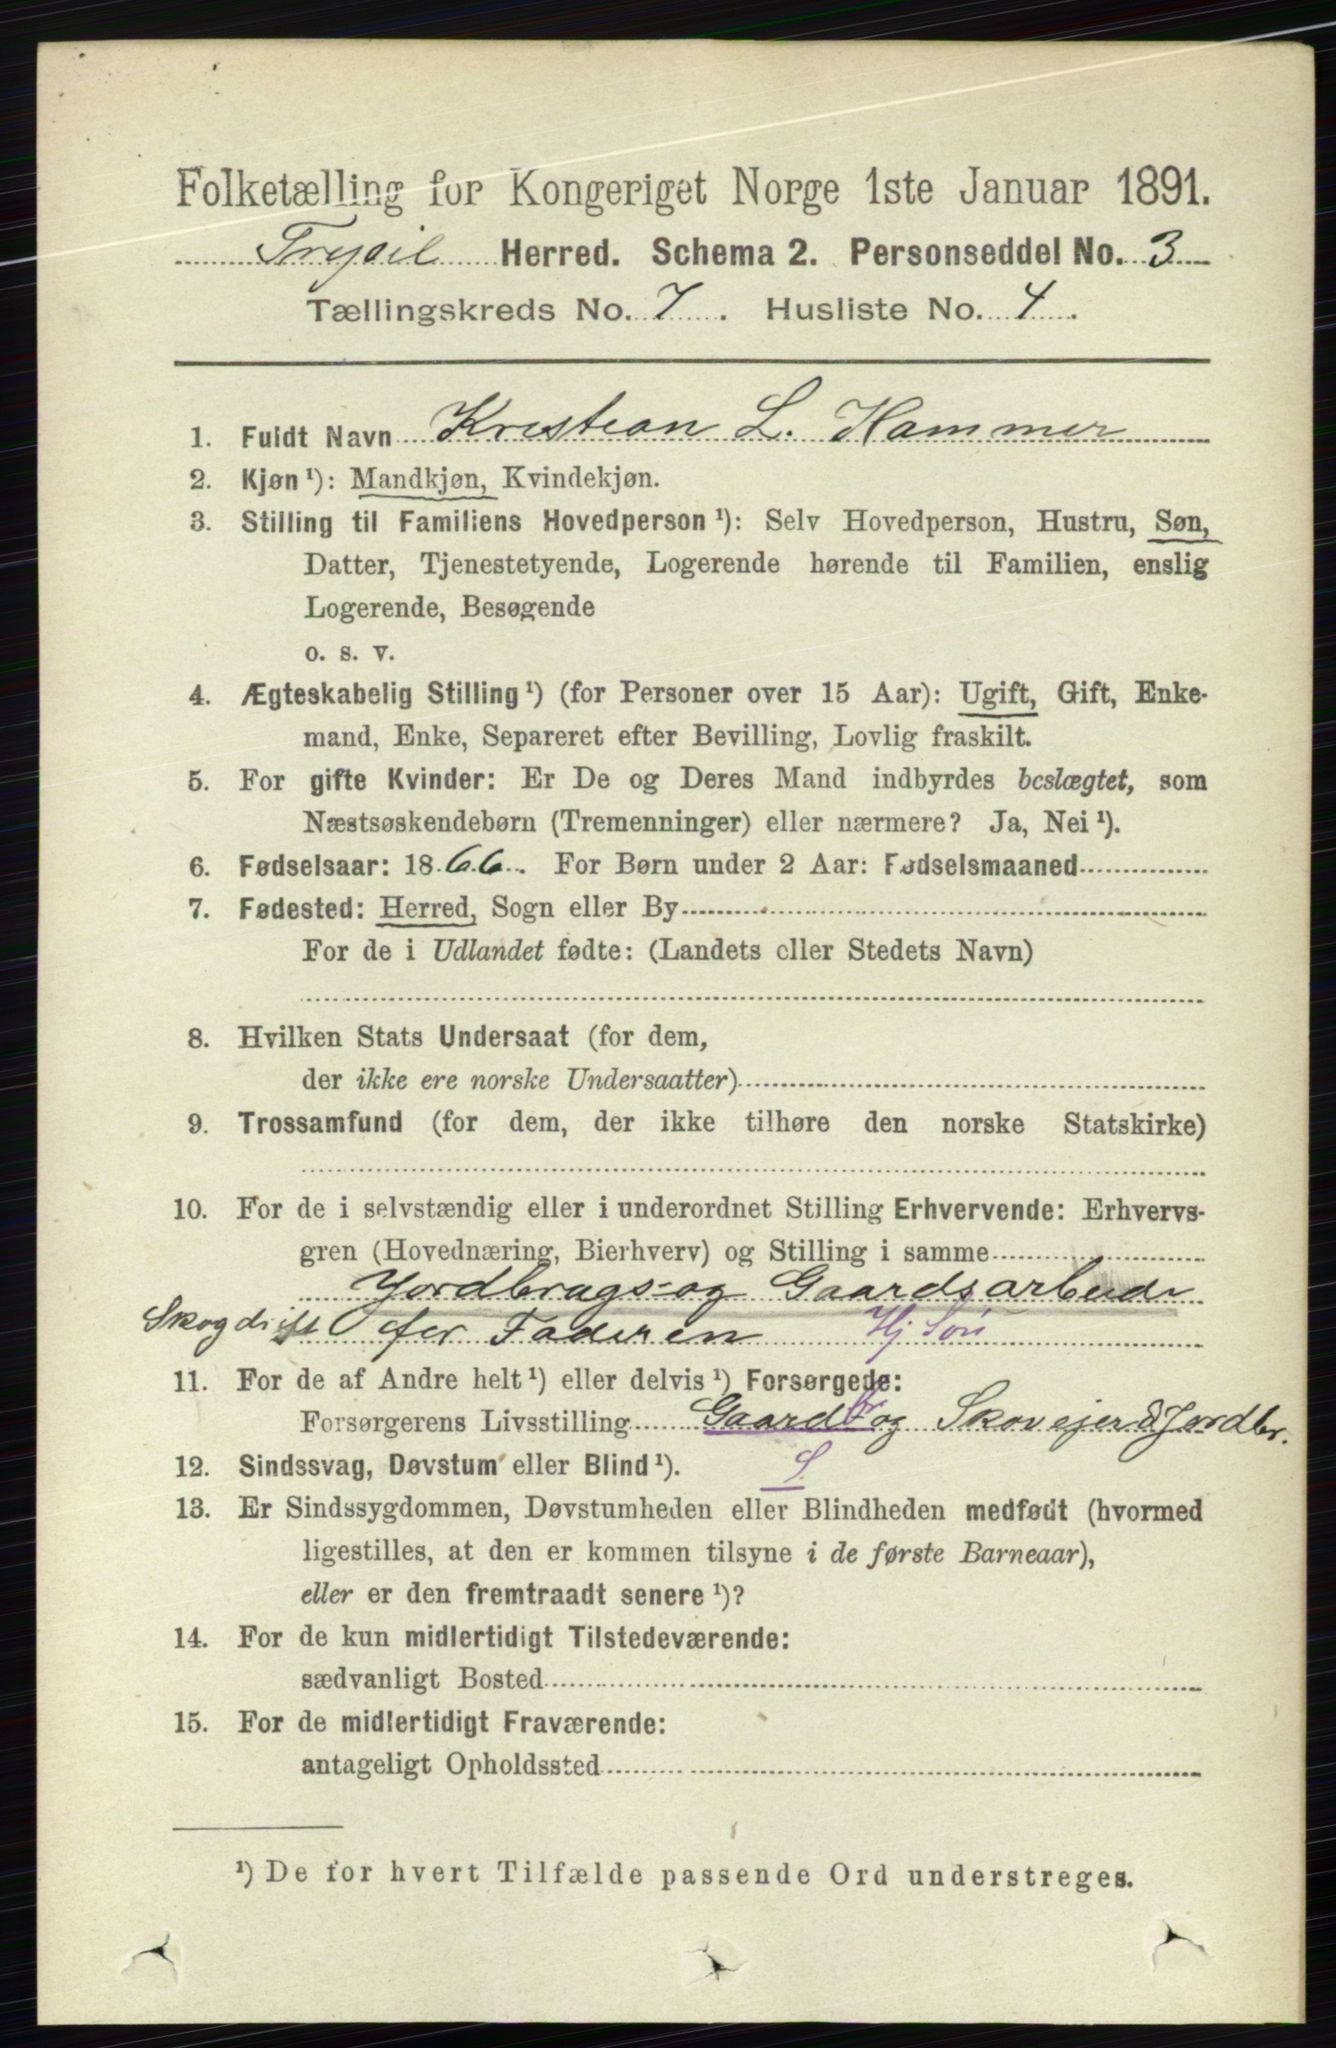 Folketælling for Kongeriget Norge 1ste Januar 1891.
Trysil Herred. Schema 2. Personseddel No. 3
Tællingskreds No. 7. Husliste No. 4.
1. Fuldt Navn Kristian L. Hammer
2. Kjøn ¹): Mandkjøn, Kvindekjøn.
3. Stilling til Familiens Hovedperson ¹): Selv Hovedperson, Hustru, Søn,
Datter, Tjenestetyende, Logerende hørende til Familien, enslig
Logerende, Besøgende
o. s. v.
4. Ægteskabelig Stilling ¹) (for Personer over 15 Aar): Ugift, Gift, Enke-
mand, Enke, Separeret efter Bevilling, Lovlig fraskilt.
5. For gifte Kvinder: Er De og Deres Mand indbyrdes beslægtet, som
Næstsøskendebørn (Tremenninger) eller nærmere? Ja, Nei ¹).
6. Fødselsaar: 1866. For Børn under 2 Aar: Fødselsmaaned
7. Fødested: Herred, Sogn eller By
For de i Udlandet fødte: (Landets eller Stedets Navn)
8. Hvilken Stats Undersaat (for dem,
der ikke ere norske Undersaatter)
9. Trossamfund (for dem, der ikke tilhøre den norske Statskirke)
10. For de i selvstændig eller i underordnet Stilling Erhvervende: Erhvervs-
gren (Hovednæring, Bierhverv) og Stilling i samme
Jordbrugs- og Gaardsarbeide
Skogdrift for Faderen Hj Søn
11. For de af Andre helt ¹) eller delvis ¹) Forsørgede:
Forsørgerens Livsstilling Gaardbr og Skovejer & Jordbr.
12. Sindssvag, Døvstum eller Blind ¹). S.
13. Er Sindssygdommen, Døvstumheden eller Blindheden medfødt (hvormed
ligestilles, at den er kommen tilsyne i de første Barneaar),
eller er den fremtraadt senere ¹)?
14. For de kun midlertidigt Tilstedeværende:
sædvanligt Bosted
15. For de midlertidigt Fraværende:
antageligt Opholdssted
¹) De for hvert Tilfælde passende Ord understreges.